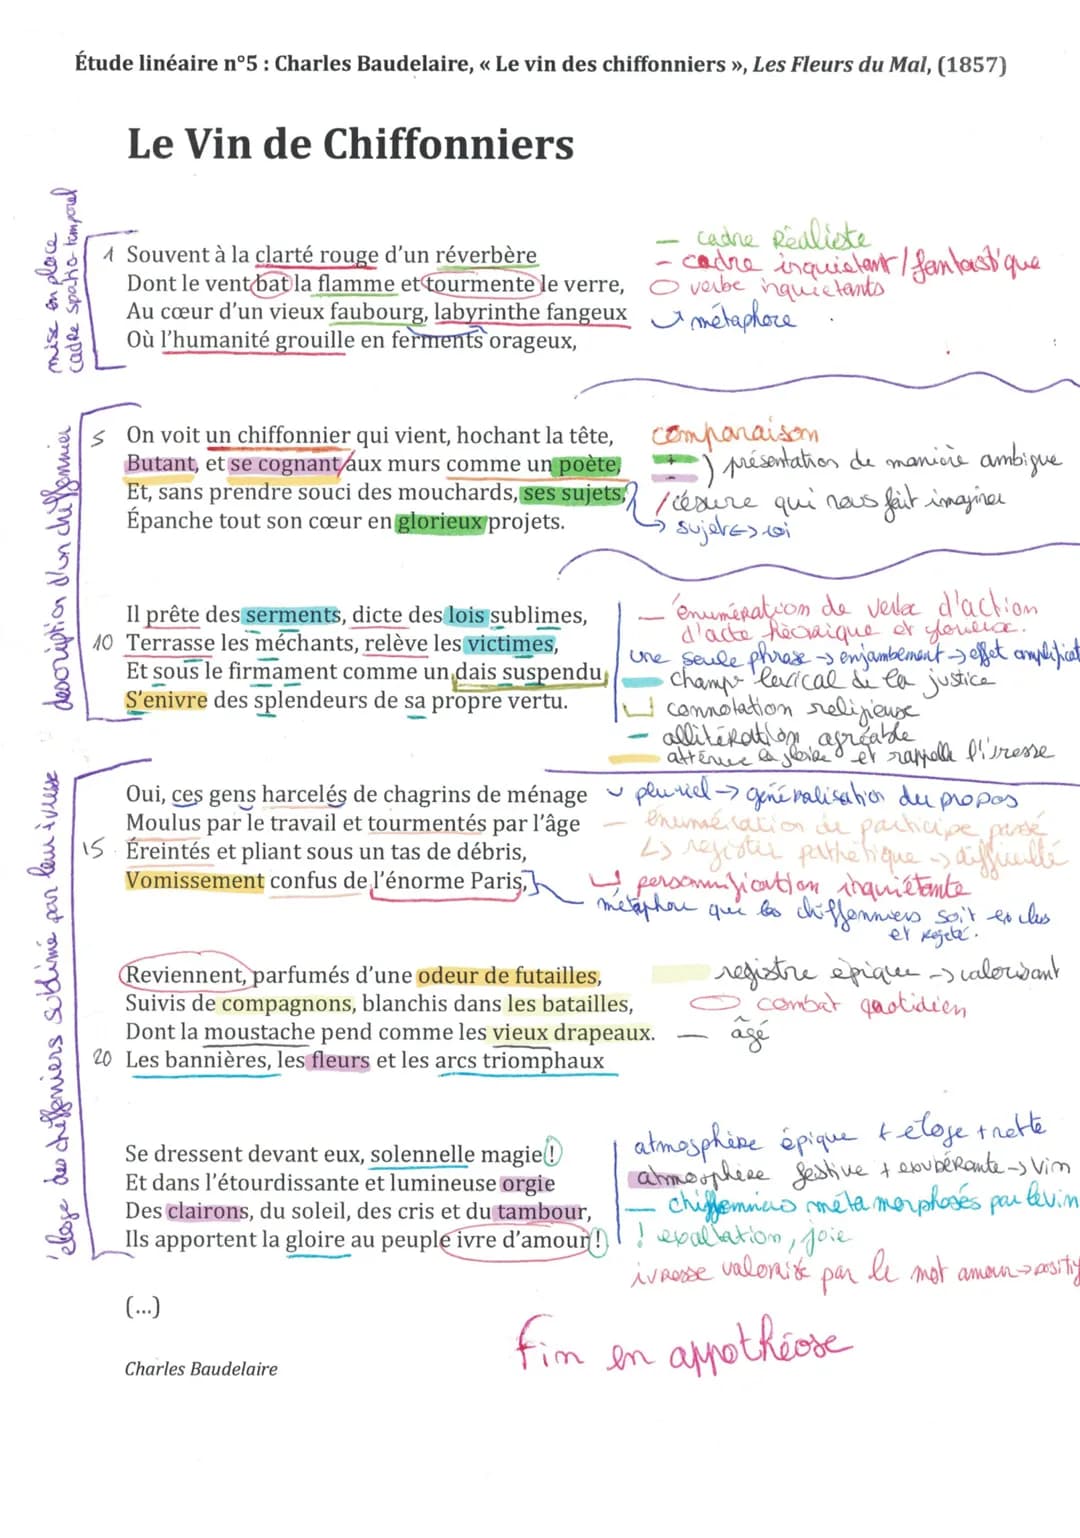 Étude linéaire n°5 : Charles Baudelaire, « Le vin des chiffonniers », Les Fleurs du Mal, (1857)
Le Vin de Chiffonniers
mise en place
cadre spatio-temporel
1 Souvent à la clarté rouge d'un réverbère
Dont le vent bat la flamme et tourmente le verre,
Au cœur d'un vieux faubourg, labyrinthe fangeux
Où l'humanité grouille en ferments orageux,
— cadre réaliste
— cadre inquiétant / fantastique
verbe inquiétants
métaphore
description d'un chiffonnier
5 On voit un chiffonnier qui vient, hochant la tête,
Butant, et se cognant/aux murs comme un poète,
Et, sans prendre souci des mouchards, ses sujets,
Épanche tout son cœur en glorieux projets.
comparaison
+
-
) présentation de manière ambigue
/ césure qui nous fait imaginer
→ sujet <-> roi
Il prête des serments, dicte des lois sublimes,
10 Terrasse les méchants, relève les victimes,
Et sous le firmament comme un dais suspendu
S'enivre des splendeurs de sa propre vertu.
— énumération de verbe d'action
d'acte héroïque et glorieux.
une seule phrase → enjambement → effet amplificat
champ lexical de la justice
connotation religieuse
— allitération agréable
atténue la gloire et rappelle l'ivresse
éloge des chiffonniers sublimé par leur ivresse
Oui, ces gens harcelés de chagrins de ménage
Moulus par le travail et tourmentés par l'âge
15 Éreintés et pliant sous un tas de débris,
Vomissement confus de l'énorme Paris,
pluriel → généralisation du propos
— énumération de participe passé
↳ registre pathétique → difficulté
personnification inquiétante
métaphore que les chiffonniers soit exclus
et rejeté.
Reviennent, parfumés d'une odeur de futailles,
Suivis de compagnons, blanchis dans les batailles,
Dont la moustache pend comme les vieux drapeaux.
20 Les bannières, les fleurs et les arcs triomphaux
registre épique → valorisant
combat quotidien
— âgé
Se dressent devant eux, solennelle magie !
Et dans l'étourdissante et lumineuse orgie
Des clairons, du soleil, des cris et du tambour,
Ils apportent la gloire au peuple ivre d'amour !
atmosphère épique + éloge + nette
atmosphère festive + exubérante → Vin
— chiffonniers métamorphosés par le vin
! exaltation, joie
ivresse valorisé par le mot amour → positif
(...)
Charles Baudelaire
fin en appothéose